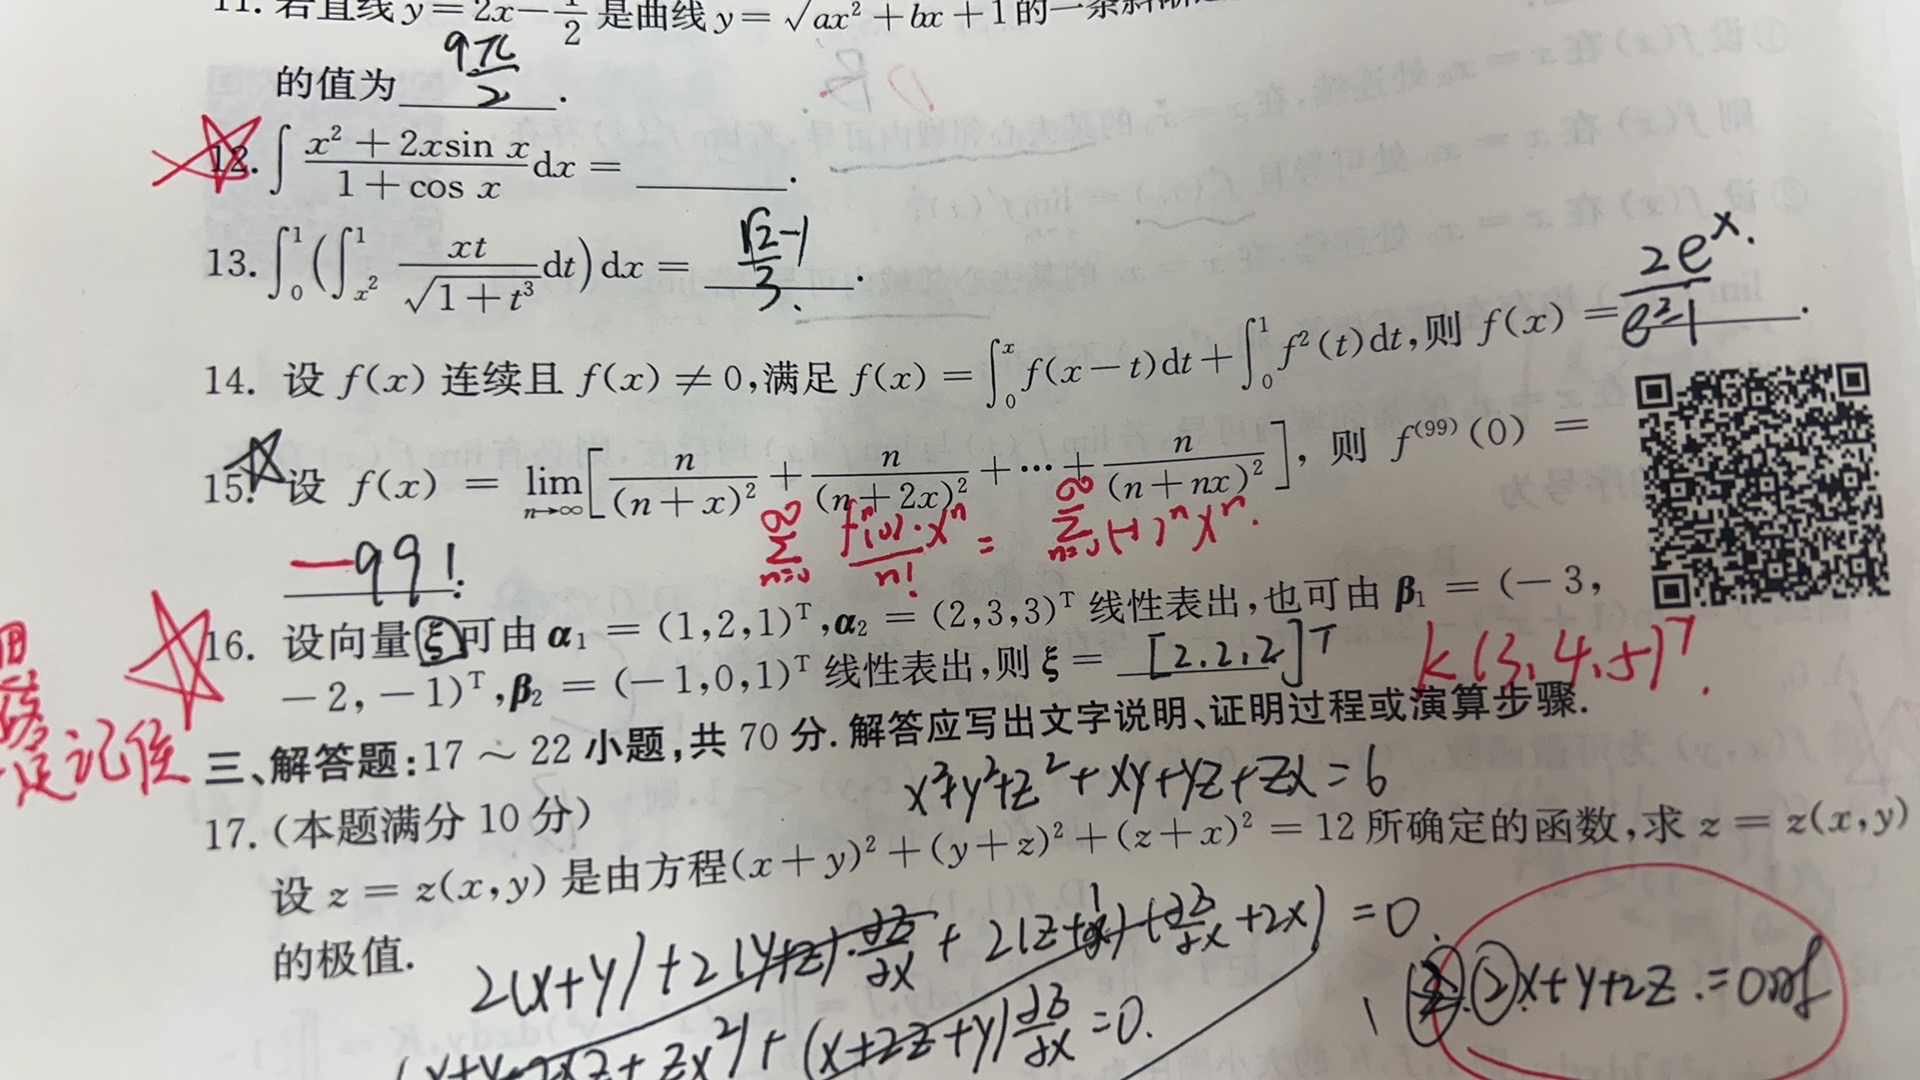 11. 若直线 y = 2x - 1/2 是曲线 y = √(ax² + bx + 1) 的一条斜渐
的值为 9π/2 .
12. ∫ (x² + 2x sin x)/(1 + cos x) dx = ______.
13. ∫₀¹ (∫_{x²}^1 xt/√(1 + t³) dt) dx = (√2-1)/3 .
14. 设 f(x) 连续且 f(x) ≠ 0,满足 f(x) = ∫₀ˣ f(x - t)dt + ∫₀¹ f²(t)dt,则 f(x) = 2eˣ/(e²-1) .
15. 设 f(x) = lim_{n→∞} [n/(n + x)² + n/(n + 2x)² + ··· + n/(n + nx)²], 则 f⁽⁹⁹⁾(0) =
-99! .
∑_{n=0}^∞ fⁿ(0)·xⁿ/n! = ∑_{n=0}^∞ (-1)ⁿ xⁿ.
16. 设向量 ξ 可由 α₁ = (1,2,1)ᵀ,α₂ = (2,3,3)ᵀ 线性表出,也可由 β₁ = (-3,
-2,-1)ᵀ,β₂ = (-1,0,1)ᵀ 线性表出,则 ξ = [2.2.2]ᵀ k(3.4.5)ᵀ.
记住
三、解答题:17 ~ 22 小题,共 70 分. 解答应写出文字说明、证明过程或演算步骤.
x²+y²+z²+xy+yz+zx=6
17. (本题满分 10 分)
设 z = z(x,y) 是由方程(x + y)² + (y + z)² + (z + x)² = 12 所确定的函数,求 z = z(x,y)
的极值.
2(x+y)+2(y+z)·∂z/∂x + 2(z+x)(∂z/∂x+2x)=0.
+(x+2z+y)∂z/∂x=0.
②x+y+2z.=0